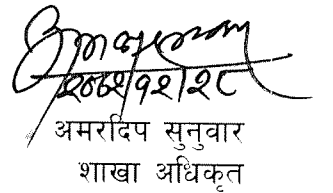 २०८१/१२/२८
अमरदिप सुनुवार
शाखा अधिकृत